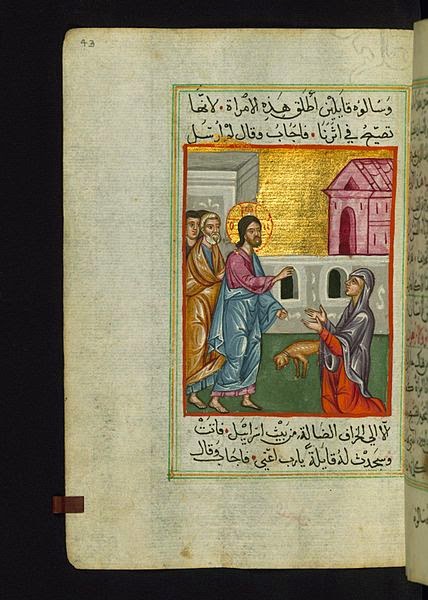 43
وسالوه قايلين أطلق هذه الامراة. لانها
تصيح في اثرنا. فاجاب وقال لم ارسل
الا الي الخراف الضالة من بيت اسرائيل. فاتت
وسجدت له قايلة يارب اعني. فاجاب وقال